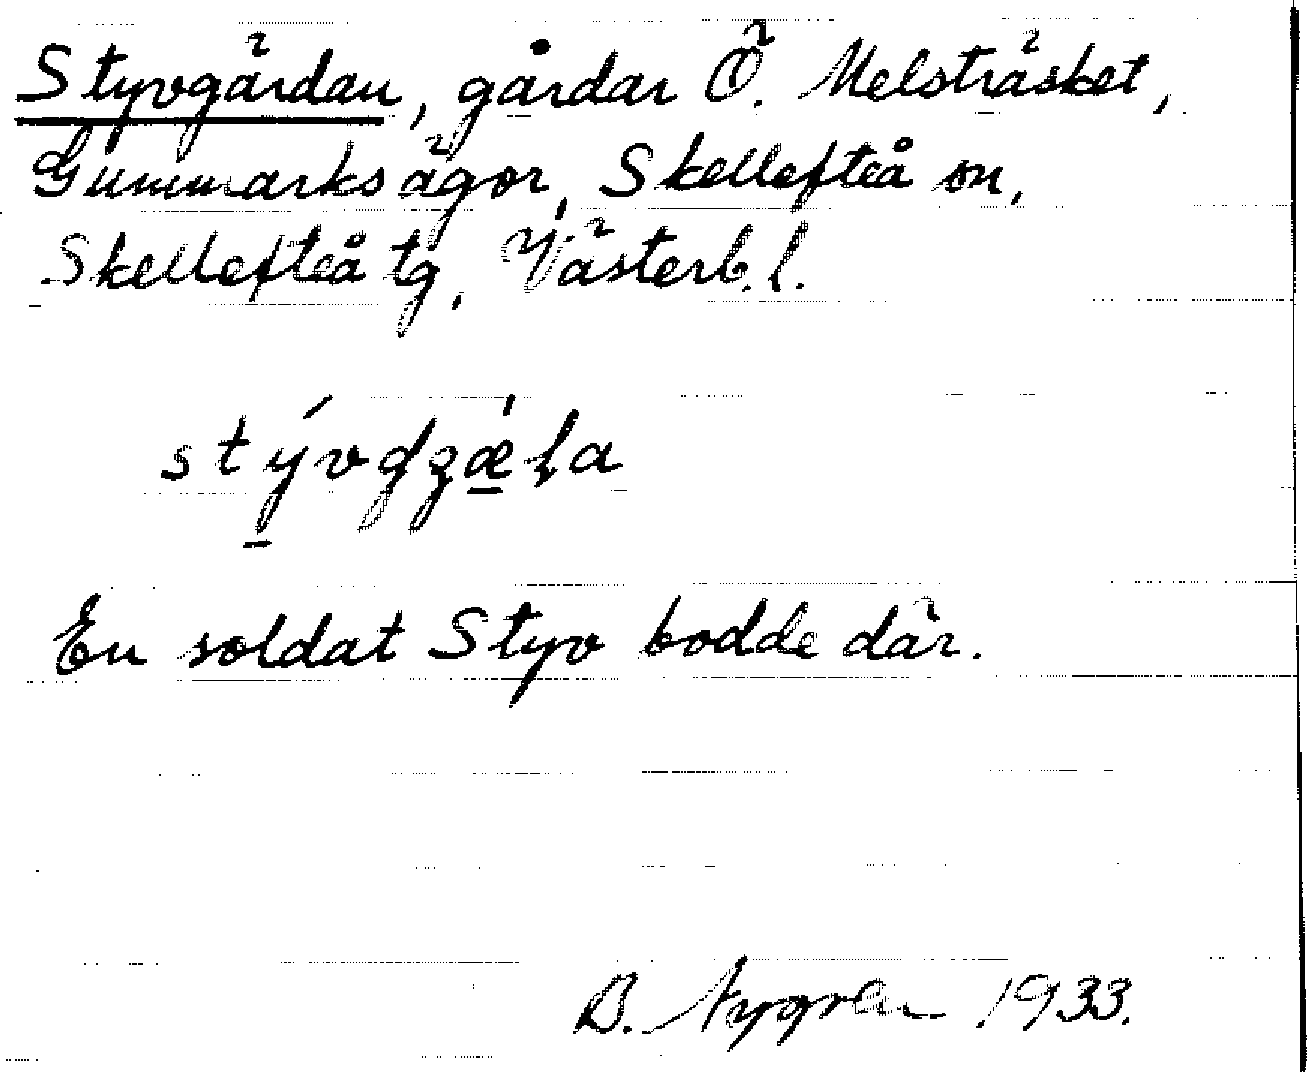 Styvgärdan, gårdar Ö. Melsträsket,
Gummarks ägor, Skellefteå sn,
Skellefteå tg, Västerb. l.
En soldat Styv bodde där.
B. Nygren 1933.